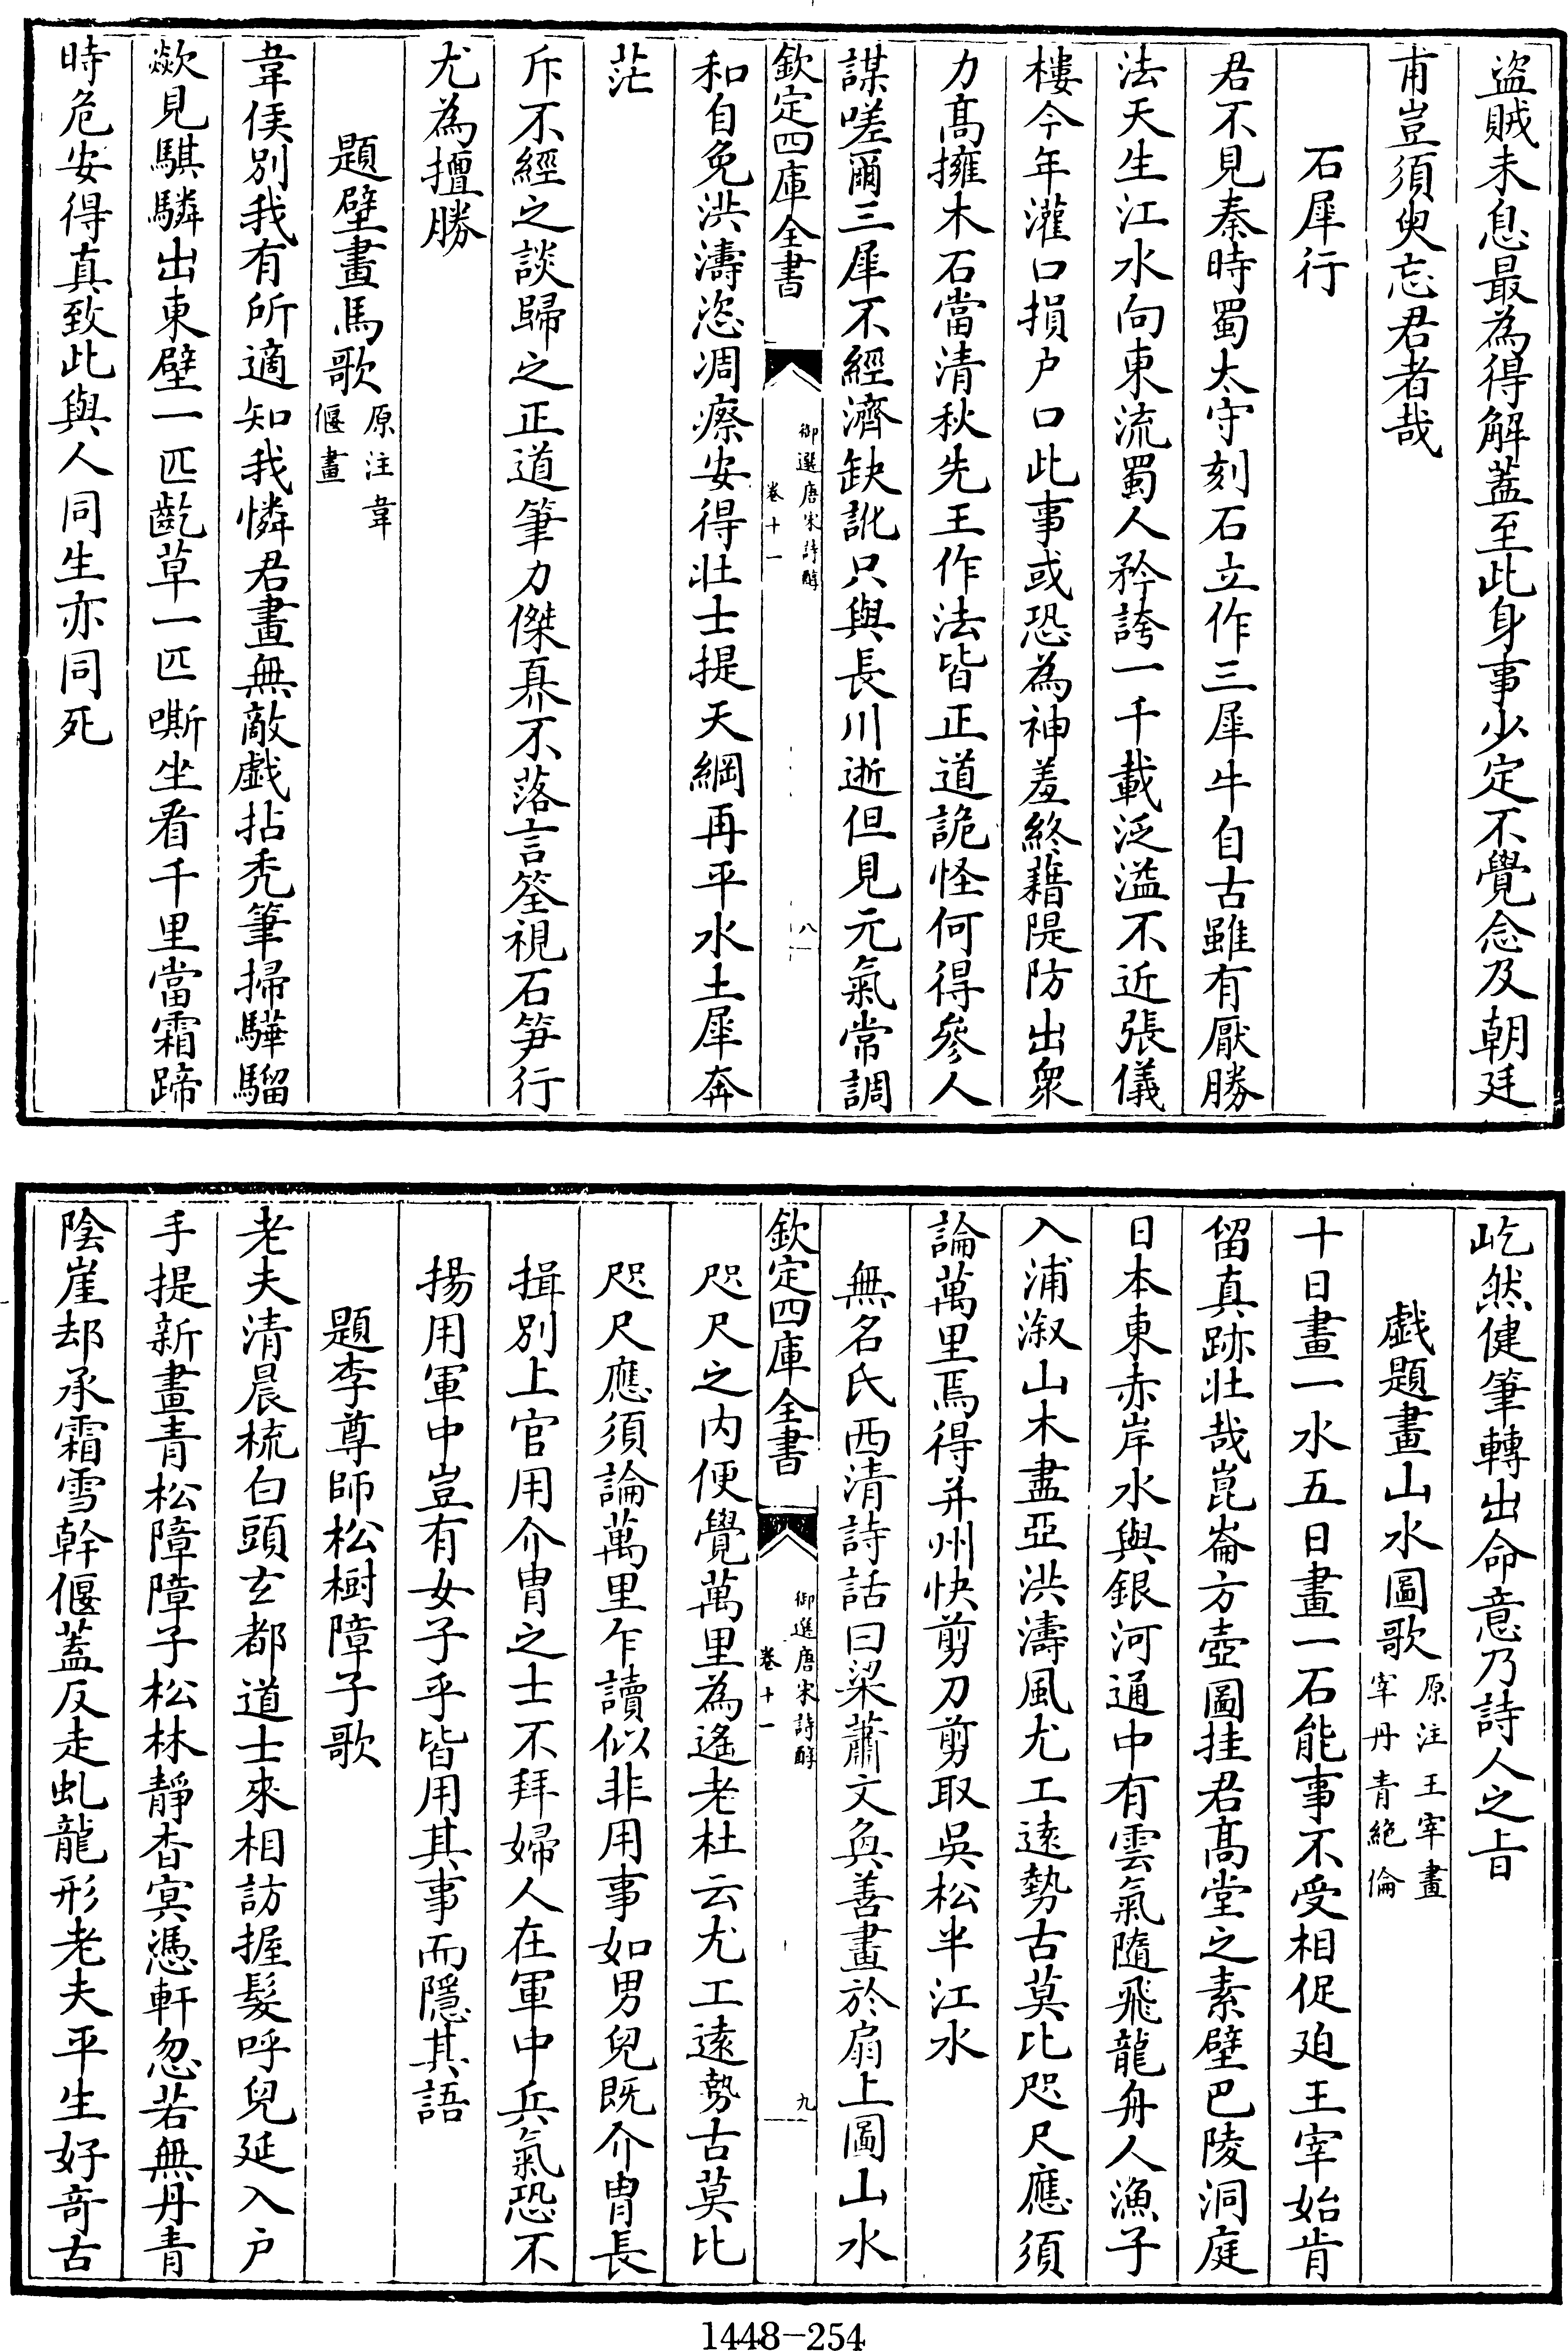 盜賊未息最為得解蓋至此身事少定不覺念及朝廷
甫豈須臾忘君者哉
石犀行
君不見秦時蜀太守刻石立作三犀牛自古雖有厭勝
法天生江水向東流蜀人矜誇一千載泛溢不近張儀
樓今年灌口損户口此事或恐為神羞終藉隄防出衆
力髙擁木石當清秋先王作法皆正道詭怪何得參人
謀嗟爾三犀不經濟缺訛只與長川逝但見元氣常調
欽定四庫全書
御選唐宋詩醇
卷十一
八
和自免洪濤恣凋瘵安得壯士提天綱再平水土犀奔
茫
斥不經之談歸之正道筆力傑奡不落言筌視石笋行
尤為擅勝
題壁畫馬歌
原注韋
偃畫
韋侯別我有所適知我憐君畫無敵戲拈秃筆掃驊騮
歘見騏驎出東壁一匹齕草一匹嘶坐看千里當霜蹄
時危安得真致此與人同生亦同死
屹然健筆轉出命意乃詩人之㫖
戲題畫山水圖歌
原注王宰畫
宰丹青絶倫
十日畫一水五日畫一石能事不受相促廹王宰始肯
留真跡壯哉崑崙方壺圖挂君髙堂之素壁巴陵洞庭
日本東赤岸水與銀河通中有雲氣隨飛龍舟人漁子
入浦溆山木盡亞洪濤風尤工遠勢古莫比咫尺應須
論萬里焉得并州快剪刀剪取吳松半江水
無名氏西清詩話曰梁蕭文奐善畫於扇上圖山水
欽定四庫全書
御選唐宋詩醇
卷十一
九
咫尺之内便覺萬里為遙老杜云尤工逺勢古莫比
咫尺應須論萬里乍讀似非用事如男兒既介胄長
揖別上官用介胄之士不拜婦人在軍中兵氣恐不
揚用軍中豈有女子乎皆用其事而隱其語
題李尊師松樹障子歌
老夫清晨梳白頭玄都道士來相訪握髮呼兒延入户
手提新畫青松障障子松林靜杳冥憑軒忽若無丹青
陰崖却承霜雪幹偃蓋反走虬龍形老夫平生好奇古
1448-254